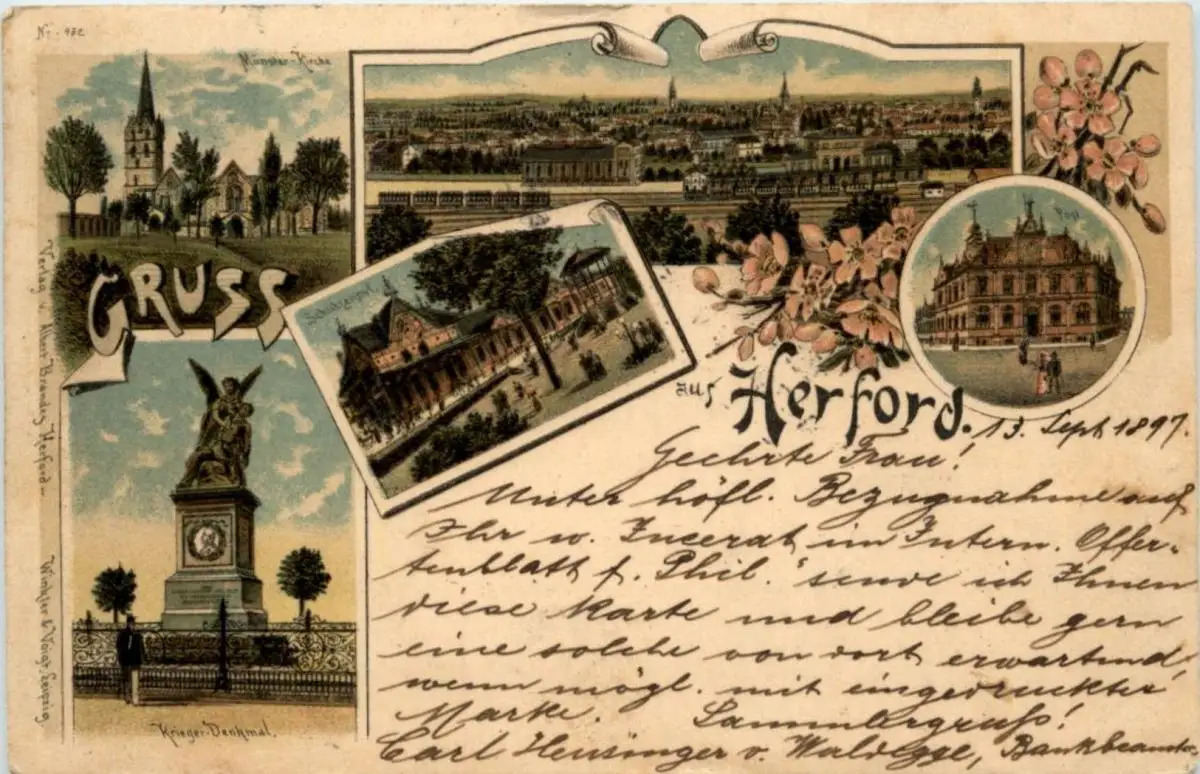 Nr. 932
Münster-Kirche
GRUSS
Schützenhof.
Post
aus Herford.
13. Sept. 1897.
Geehrte Frau!
Unter höfl. Bezugnahme auf
Ihr w. Incerat im Intern. Offer-
tenblatt f. Phil." sende ich Ihnen
diese Karte und bleibe gern
eine solche von dort erwartend,
wenn mögl. mit eingedruckter
Marke. Sammlergruß!
Carl Heusinger v. Waldegge, Bankbeamter
Krieger-Denkmal.
Verlag v. Brandes, Herford.
Winkler & Voigt, Leipzig.